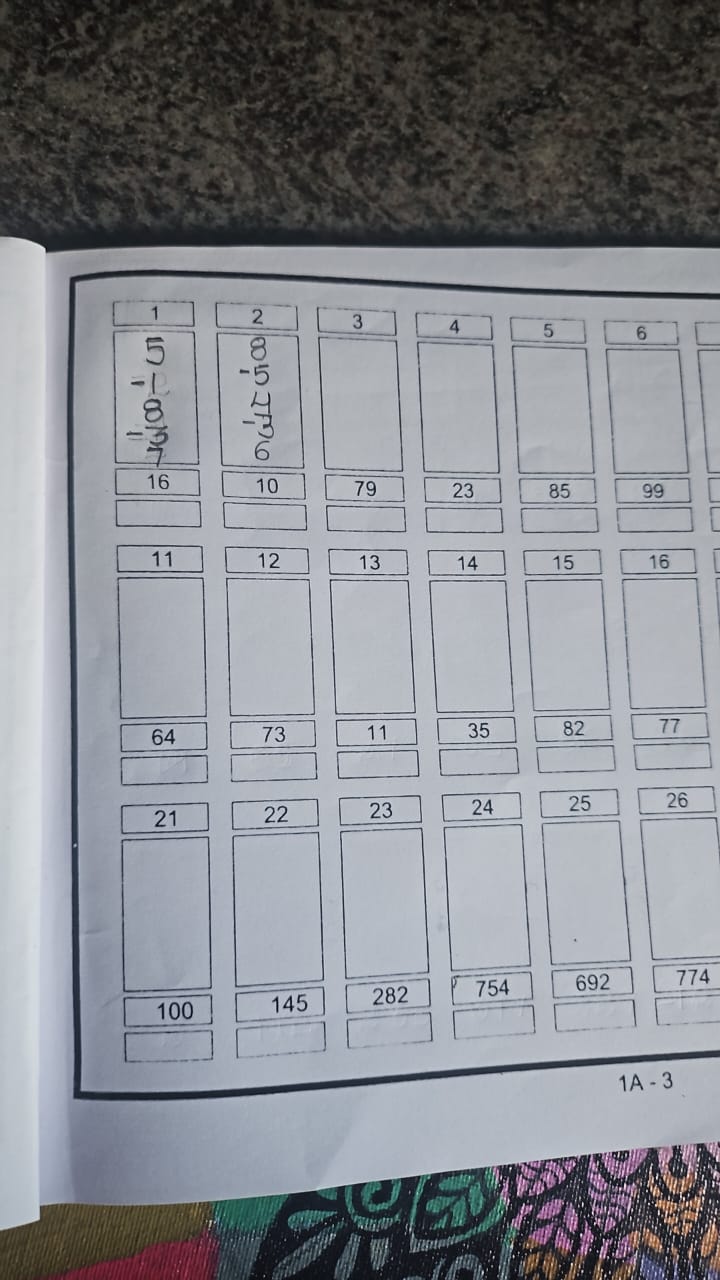 1 2 3 4 5 6
5 8
-1 5
8 -1
-3
7 6
16 10 79 23 85 99
11 12 13 14 15 16
64 73 11 35 82 77
21 22 23 24 25 26
100 145 282 754 692 774
1A - 3